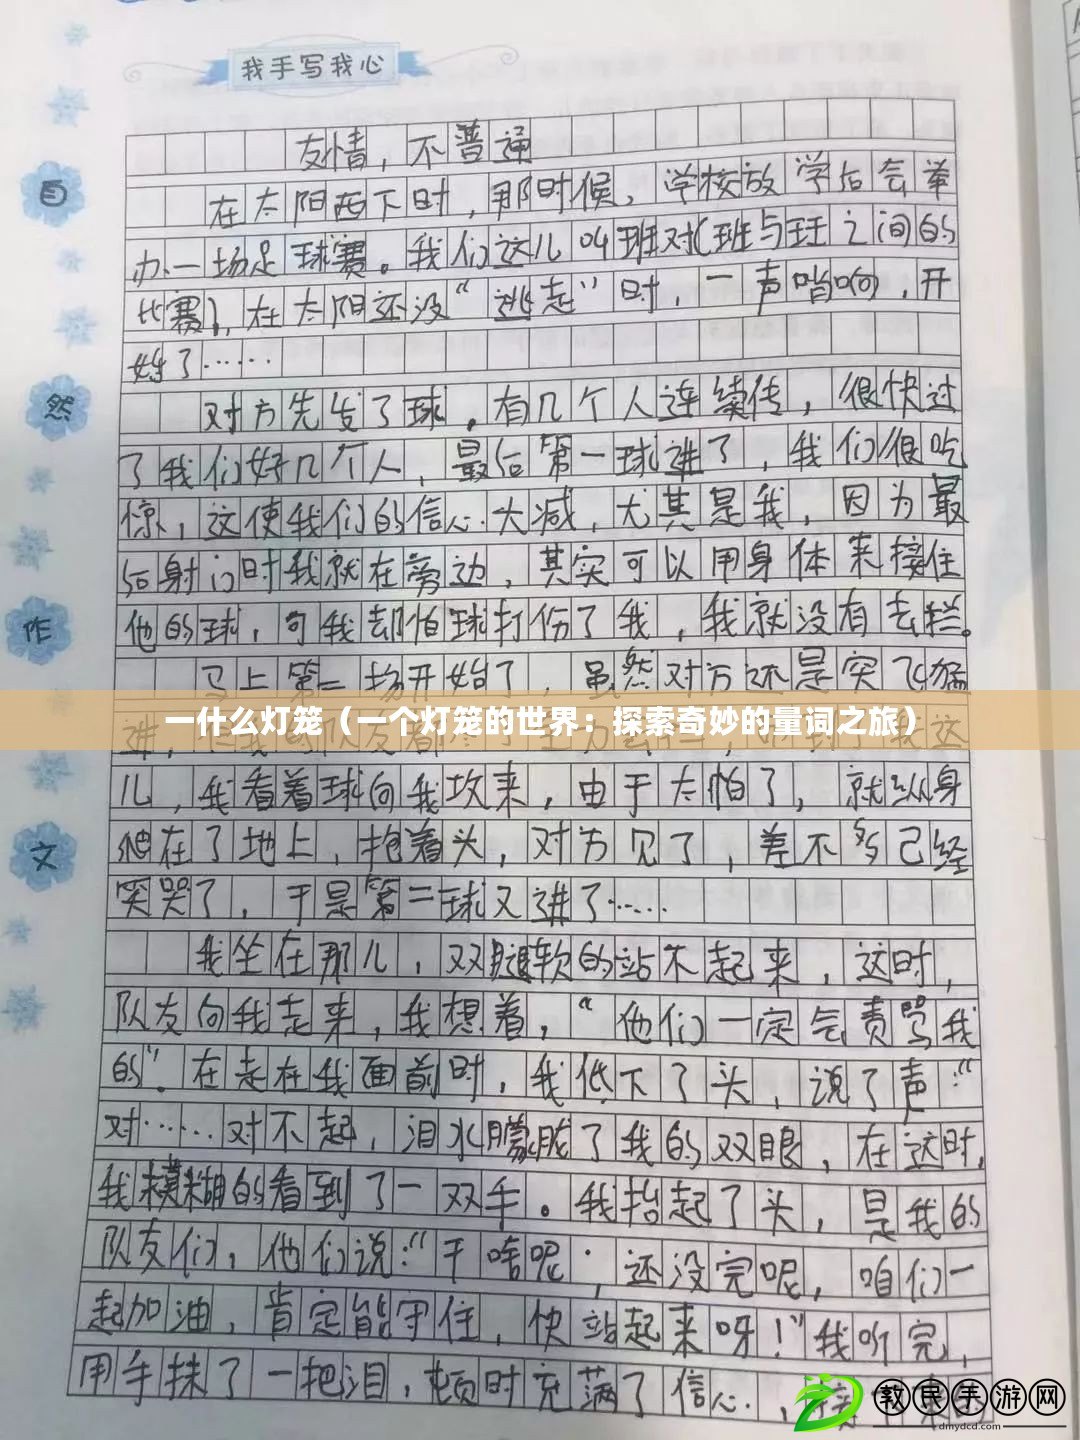 我手写我心
友情，不普通
在太阳西下时，那时候，学校放学后会举
办一场足球赛。我们这儿叫班对(班与班之间的
比赛)，在太阳还没“逃走”时，一声哨响，开
始了……
对方先发了球，有几个人连续传，很快过
了我们好几个人，最后第一球进了，我们很吃
惊，这使我们的信心大减，尤其是我，因为最
后射门时我就在旁边，其实可以用身体来接住
他的球，可我却怕球打伤了我，我就没有去拦。
马上第二场开始了，虽然对方还是突飞猛
进，
一什么灯笼（一个灯笼的世界：探索奇妙的量词之旅）
儿，我看着球向我攻来，由于太怕了，就纵身
爬在了地上，抱着头，对方见了，差不多已经
笑哭了，于是第二球又进了……
我坐在那儿，双腿软的站不起来，这时，
队友向我走来，我想着，“他们一定会责骂我
的”。在走在我面前时，我低下了头，说了声：“
对……对不起，泪水朦胧了我的双眼，在这时，
我模糊的看到了一双手。我抬起了头，是我的
队友们，他们说：“干啥呢，还没完呢，咱们一
起加油，肯定能守住，快站起来呀！”我听完，
用手抹了一把泪，顿时充满了信心，
自
然
作
文
教民手游网
dmydcd.com